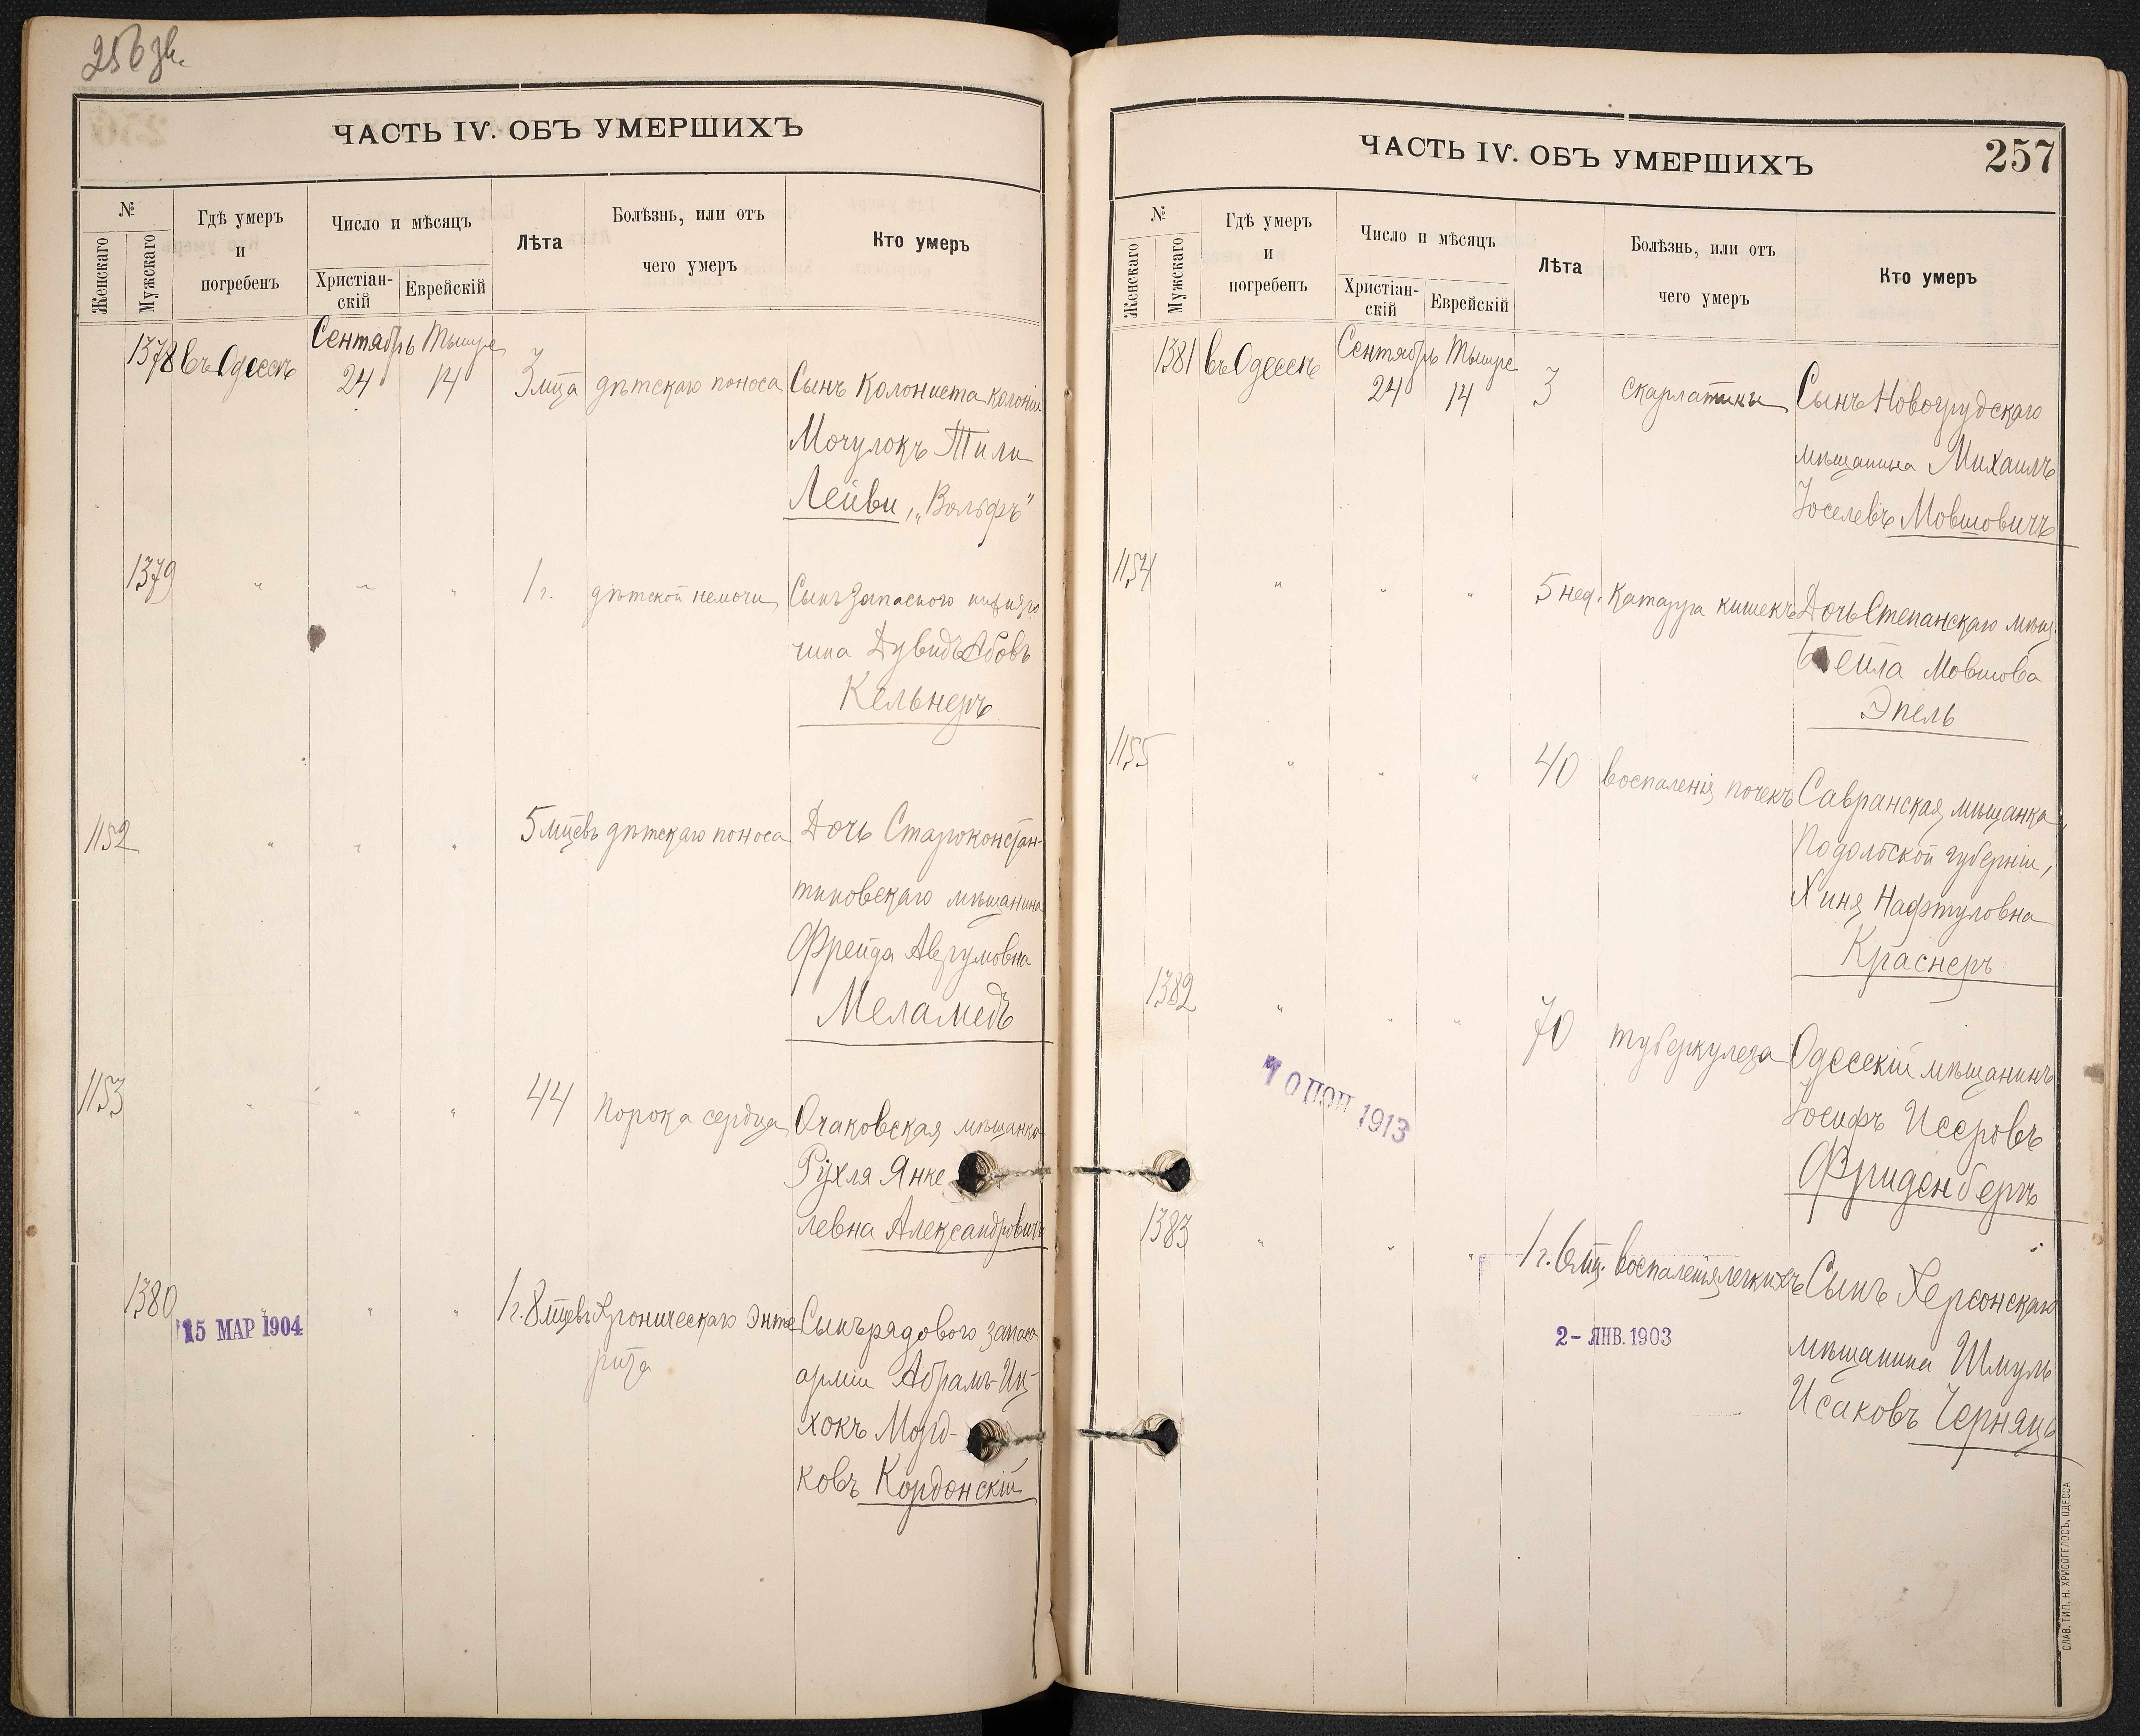 256 зв.
ЧАСТЬ IV. ОБЪ УМЕРШИХЪ
№
Женскаго
Мужскаго
Гдѣ умеръ
и
погребенъ
Число и мѣсяцъ
Христіан-
скій
Еврейскій
Лѣта
Болѣзнь, или отъ
чего умеръ
Кто умеръ
1378 въ Одессѣ Сентябрь 24 Тышре 14 3 мца дѣтскаго поноса Сынъ колониста колоніи
Мочулокъ
Лейви, „Вольфъ"
1379 " " " 1 г. дѣтской немочи Сынъ запасного
чина Дувидъ Абовъ
Кельнеръ
1152 " " " 5 мцевъ дѣтскаго поноса Дочь Староконстан-
тиновскаго мѣщанина
Фрейда Аврумовна
Меламедъ
1153 " " " 44 порока сердца Очаковская мѣщанка
Рухля Янке
левна Александровичъ
1380 " " " 1 г. 8 мцевъ Хроническаго энте-
рита
Сынъ рядового запаса
арміи Абрамъ-Иц-
хокъ Морд-
ковъ Кордонскій
15 МАР 1904
ЧАСТЬ IV. ОБЪ УМЕРШИХЪ
257
№
Женскаго
Мужскаго
Гдѣ умеръ
и
погребенъ
Число и мѣсяцъ
Христіан-
скій
Еврейскій
Лѣта
Болѣзнь, или отъ
чего умеръ
Кто умеръ
1381 въ Одессѣ Сентябрь 24 Тышре 14 3 скарлатины Сынъ Новогрудскаго
мѣщанина Михаилъ
Іоселевъ Мовшовичъ
1154 " " " 5 нед. катарра кишекъ Дочь Степанскаго мѣщ.
Бейла Мовшова
Эпель
1155 " " " 40 воспаленія почекъ Савранская мѣщанка,
Подольской губерніи,
Хиня Нафтуловна
Краснеръ
1382 " " " 70 туберкулеза Одесскій мѣщанинъ
Іосифъ Иссровъ
Фриденбергъ
1913
1383 " " " 1 г. 6 мц. воспаленія легкихъ Сынъ Херсонскаго
мѣщанина Шмуль
Исаковъ Чернякъ
2- ЯНВ. 1903
СЛАВ. ТИП. Н. ХРИСОГЕЛОСЪ, ОДЕССА